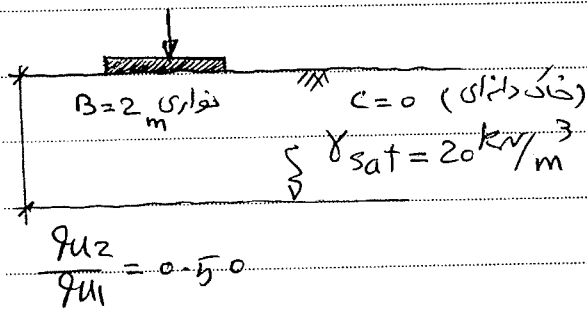 B=2m نواری C=0 (خاک دانه‌ای)
γsat = 20 kN/m³
qu2/qu1 = 0.50